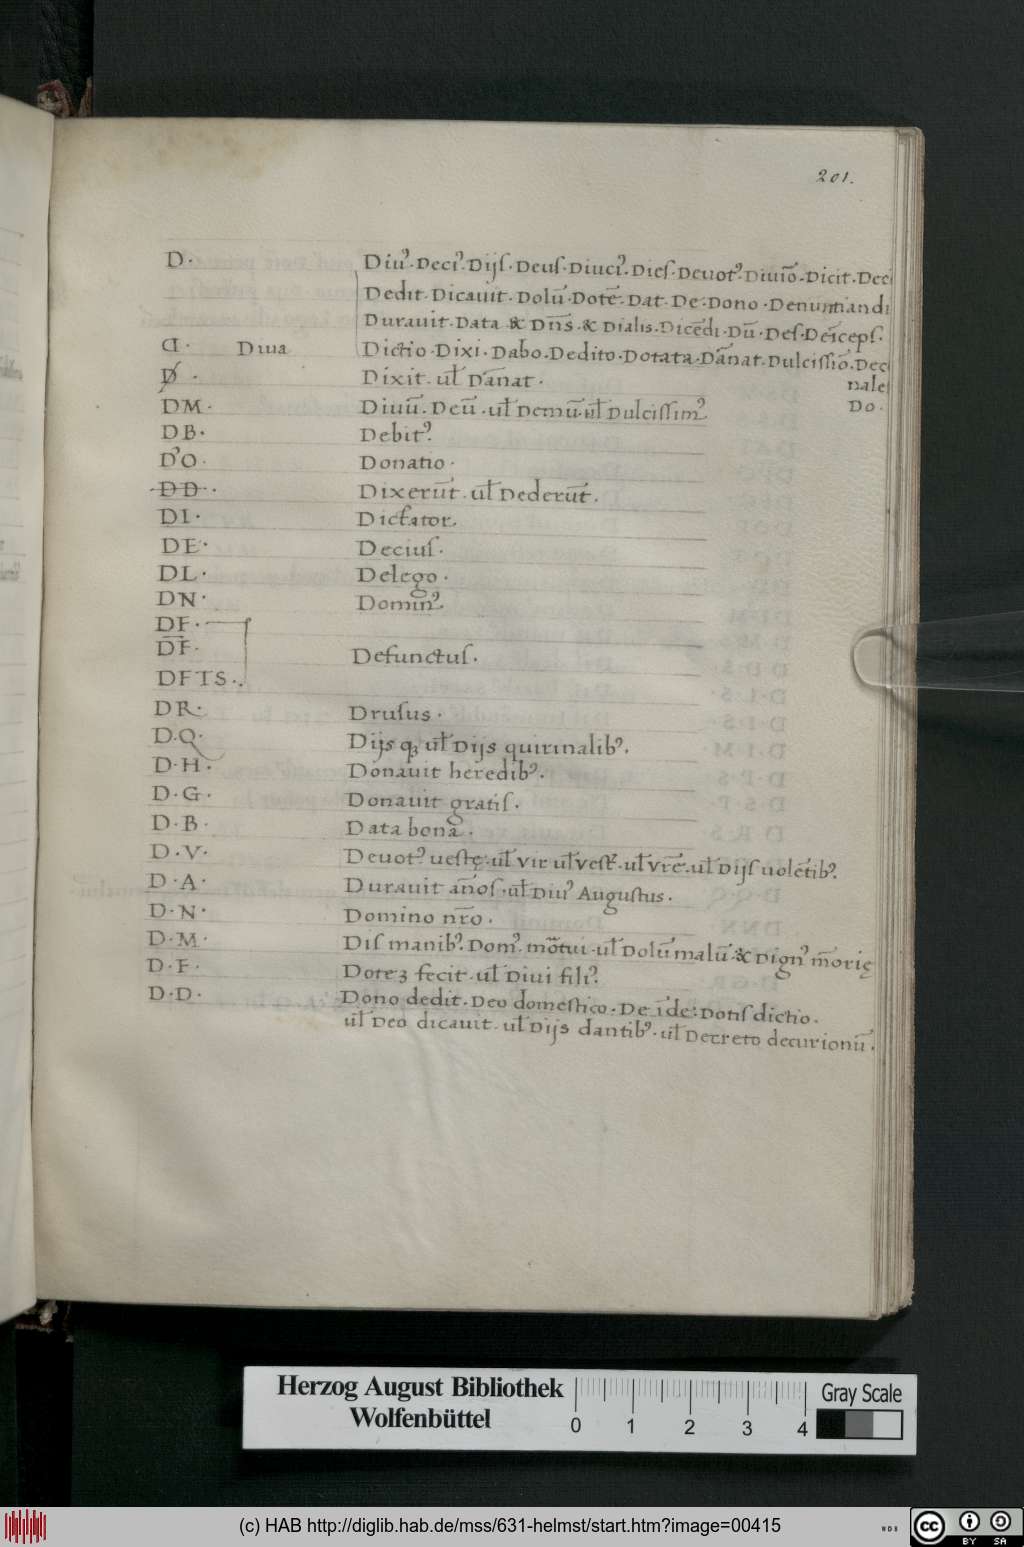 201.
D· Diuꝰ·Deciꝰ·Dijſ·Deuſ·Diuciꝰ·Dieſ·Deuotꝰ·Diuiō·Dicit·Dec
Dedit·Dicauit·Dolū·Dotē·Dat·De·Dono·Denuntiandi
Durauit·Data·&·Dn̄s·&·Dialis·Dicēdi·Dū·Deſ·Deīcepſ·
ᗡ· Diua Dictio·Dixi·Dabo·Dedito·Dotata·Dānat·Dulciſſiō·Dec
nale
D̸· Dixit·ul̄ Dānat·
Do·
DM· Diuū·Deū·ul̄ Demū·ul̄ Dulciſſimꝰ
DB· Debitꝰ.
DꝰO· Donatio·
D̶D̶· Dixerūt·ul̄ Dederūt·
DI· Dictator.
DE· Deciuſ·
DL· Delego·
DN· Dominꝰ
DF·
D̄F̄·
Defunctuſ·
DFTS·
DR· Druſus·
D·Q· Dijs qꝫ ul̄ Dijs quirinalibꝰ.
D·H· Donauit heredibꝰ·
D·G· Donauit gratiſ·
D·B· Data bona·
D·V· Deuotꝰ ueſtę·ul̄ vir ul̄ veſt̄·ul̄ vr̄ę·ul̄ Dijſ uolētibꝰ.
D·A· Durauit an̄oſ·ul̄ Diuꝰ Auguſtus·
D·N· Domino nr̄o·
D·M· Diſ manibꝰ·Domꝰ mōtui·ul̄ Dolū malū·&·Dignꝰ m̄orię
D·F· Doteꝫ fecit·ul̄ Diui filiꝰ.
D·D· Dono dedit·Deo domeſtico·De īde:Dotiſ dictio·
ul̄ Deo dicauit·ul̄ Dijs dantibꝰ·ul̄ Decreto decurionū·
Herzog August Bibliothek
Wolfenbüttel
0 1 2 3 4
Gray Scale
(c) HAB http://diglib.hab.de/mss/631-helmst/start.htm?image=00415
WDB
cc BY SA